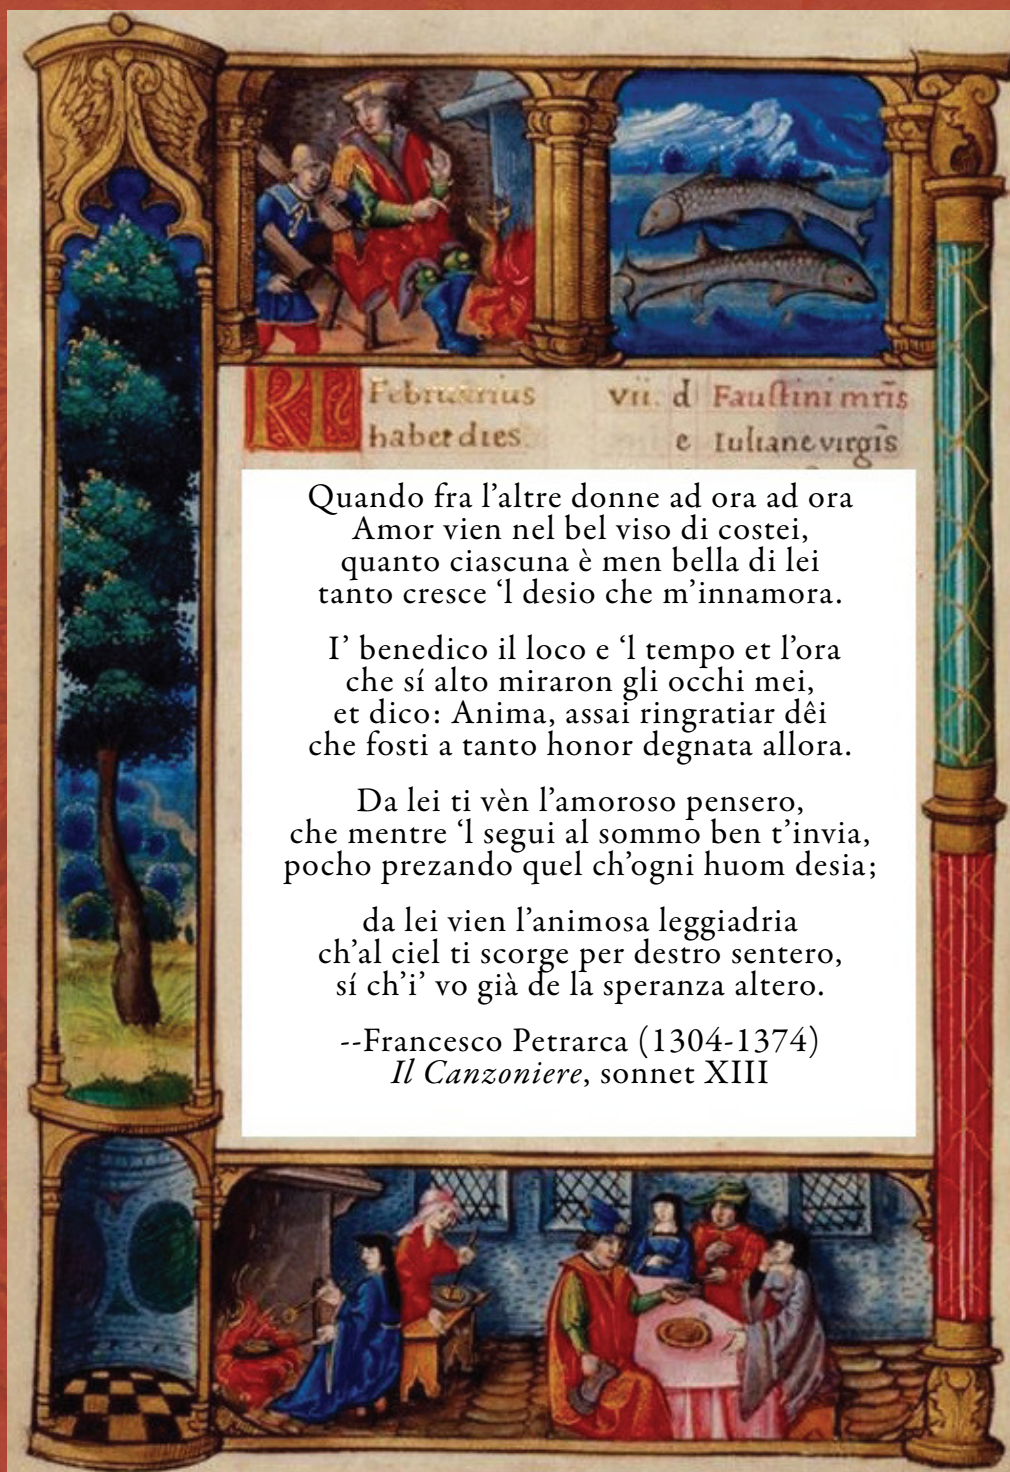 KL Februarius
habet dies
vii. d Faustini mr̃is
e Iuliane virgis̃
Quando fra l’altre donne ad ora ad ora
Amor vien nel bel viso di costei,
quanto ciascuna è men bella di lei
tanto cresce ‘l desio che m’innamora.
I’ benedico il loco e ‘l tempo et l’ora
che sí alto miraron gli occhi mei,
et dico: Anima, assai ringratiar dêi
che fosti a tanto honor degnata allora.
Da lei ti vèn l’amoroso pensero,
che mentre ‘l segui al sommo ben t’invia,
pocho prezando quel ch’ogni huom desia;
da lei vien l’animosa leggiadria
ch’al ciel ti scorge per destro sentero,
sí ch’i’ vo già de la speranza altero.
--Francesco Petrarca (1304-1374)
Il Canzoniere, sonnet XIII